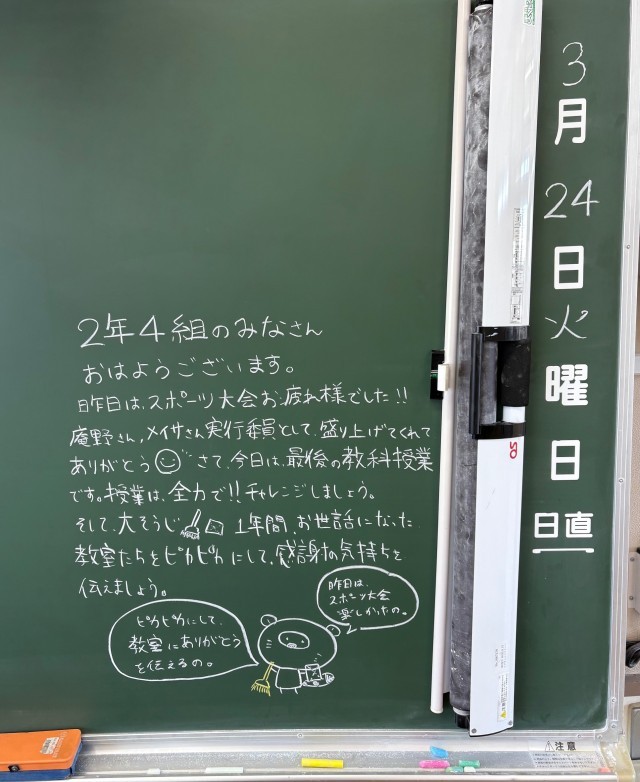 3
月
24
日
火
曜
日
日直
2年4組のみなさん
おはようございます。
昨日は、スポーツ大会お疲れ様でした!!
庵野さん、メイサさん実行委員として、盛り上げてくれて
ありがとう さて、今日は、最後の教科授業
です。授業は、全力で!!チャレンジしましょう。
そして、大そうじ 1年間 お世話になった
教室たちをピカピカにして、感謝の気持ちを
伝えましょう。
昨日は、
スポーツ大会
楽しかったの。
ピカピカにして、
教室にありがとう
を伝えるの。
注意